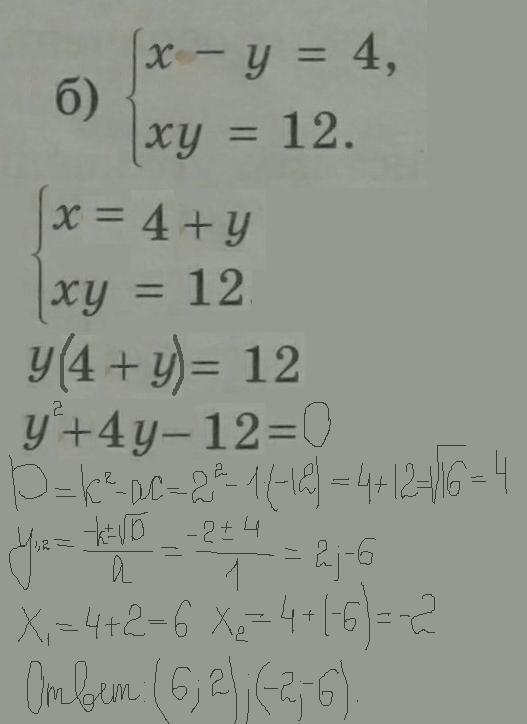 б) { x − y = 4,
xy = 12.
{ x = 4 + y
xy = 12
y(4 + y) = 12
y² + 4y − 12 = 0
D = k² − ac = 2² − 1·(−12) = 4 + 12 = √16 = 4
y₁,₂ = (−k ± √D)/a = (−2 ± 4)/1 = 2; −6
x₁ = 4 + 2 = 6 x₂ = 4 + (−6) = −2
Ответ: (6; 2); (−2; −6).